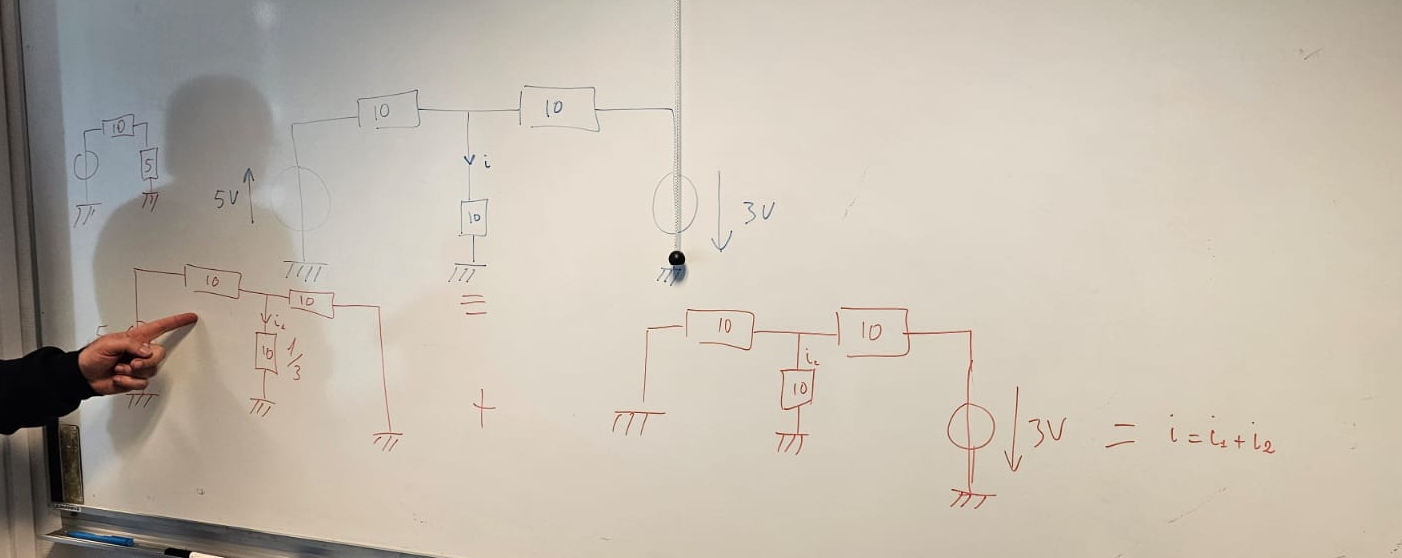 10
10
10
5
i
10
5V
3V
=
10
10
i₁
10
1/3
5
+
10
10
i₂
10
3V = i = i₁ + i₂